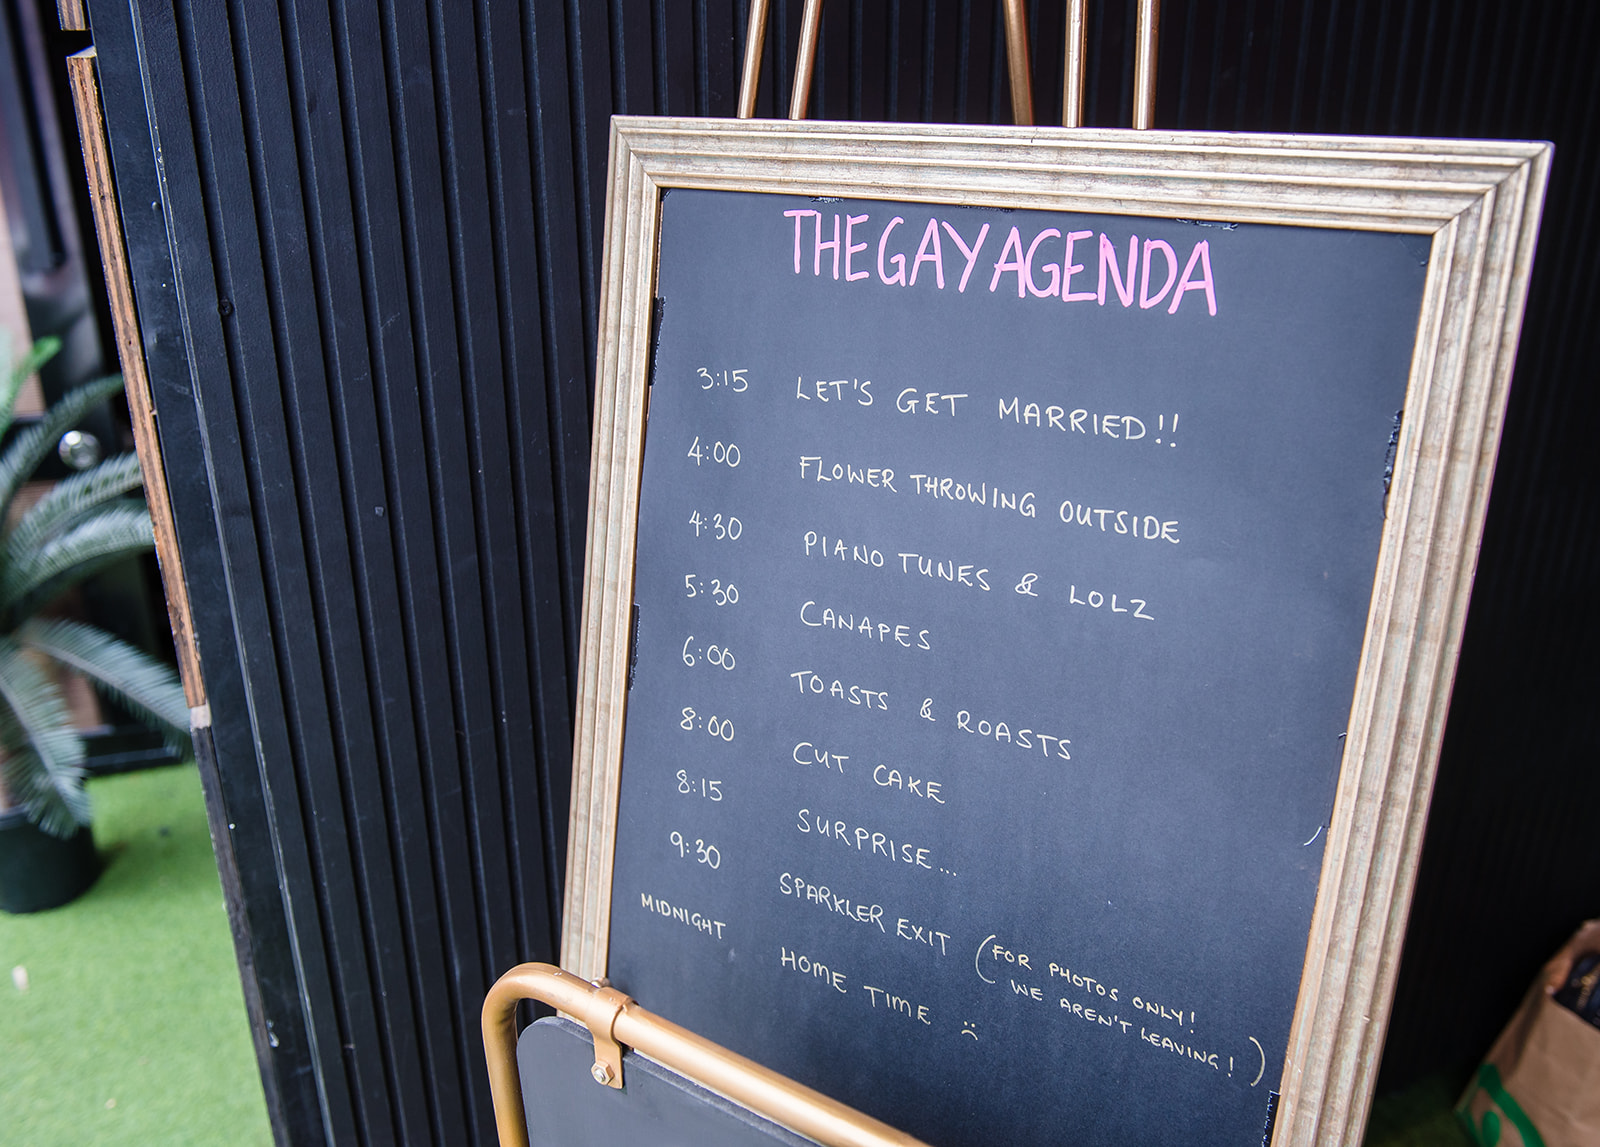 THE GAY AGENDA
3:15 LET'S GET MARRIED!!
4:00 FLOWER THROWING OUTSIDE
4:30 PIANO TUNES & LOLZ
5:30 CANAPES
6:00 TOASTS & ROASTS
8:00 CUT CAKE
8:15 SURPRISE...
9:30 SPARKLER EXIT (FOR PHOTOS ONLY!
WE AREN'T LEAVING!)
MIDNIGHT HOME TIME :(